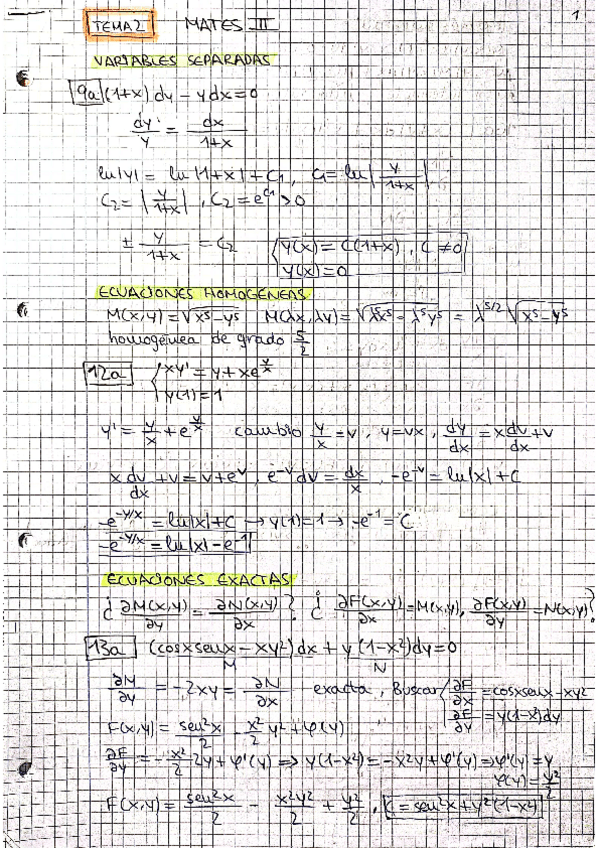 1
TEMA 2 MATES III
VARIABLES SEPARADAS
9a (1+x) dy - y dx = 0
dy/y = dx/(1+x)
ln|y| = ln|1+x| + C₁, C₁ = ln|y/(1+x)|
C₂ = |y/(1+x)|, C₂ = e^C₁ > 0
± y/(1+x) = C₂ { y(x) = C(1+x), C ≠ 0
y(x) = 0
ECUACIONES HOMOGÉNEAS
M(x,y) = √(x⁵-y⁵) M(λx,λy) = √(λ⁵x⁵ - λ⁵y⁵) = λ^(5/2) √(x⁵-y⁵)
homogénea de grado 5/2
12a { xy' = y + xe^(y/x)
y(1) = 1
y' = y/x + e^(y/x) cambio y/x = v, y = vx, dy/dx = x dv/dx + v
x dv/dx + v = v + e^v, e^-v dv = dx/x, -e^-v = ln|x| + C
-e^(-y/x) = ln|x| + C → y(1) = 1 → -e^-1 = C
-e^(-y/x) = ln|x| - e^-1
ECUACIONES EXACTAS
¿ ∂M(x,y)/∂y = ∂N(x,y)/∂x ? ¿ ∂F(x,y)/∂x = M(x,y), ∂F(x,y)/∂y = N(x,y) ?
13a (cosx senx - xy²) dx + y(1-x²) dy = 0
M N
∂M/∂y = -2xy = ∂N/∂x exacta, Buscar { ∂F/∂x = cosx senx - xy²
∂F/∂y = y(1-x²)dy
F(x,y) = sen²x/2 - x²/2 y² + φ(y)
∂F/∂y = - x²/2 2y + φ'(y) ⇒ y(1-x²) = -x²y + φ'(y) ⇒ φ'(y) = y
φ(y) = y²/2
F(x,y) = sen²x/2 - x²y²/2 + y²/2, C = sen²x + y²(1-x²)